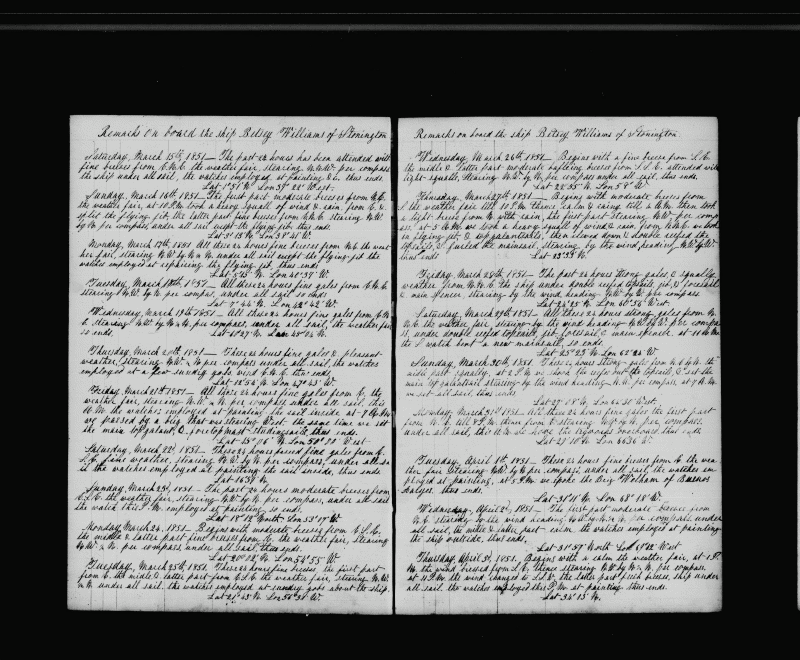 Remarks On board the ship Betsey Williams of Stonington
Saturday, March 15th, 1851— The past 24 hours has been attended with
fine breezes from E.N.E. the weather fair, stearing N.W.W. per compass
the ship under all sail, the watches employed at painting &c. thus ends
Lat 1°51' N Lon 37° 22' West.
Sunday, March 16th, 1851— The first part moderate breezes from
the weather fair, at 10 P.M. took a heavy squall of wind & rain, from E. &
split the flying jib, the latter part fine breezes from E.N.E. stearing N.W.
by N. per compass, under all sail except the flying jib, thus ends
Lat 3° 13' N. Lon 38° 41' W.
Monday, March 17th, 1851 All these 24 hours fine breezes from N.E. the weat
her fair, stearing N.W. by N. under all sail except the flying jib the
watches employed at repairing the flying jib, thus ends
Lat 5°15' N. Lon 40° 37' W.
Tuesday, March 18th, 1851— All these 24 hours fine gales from E.N.E.
stearing N.W. by N. per compass, under all sail so ends
Lat 7° 44' N. Lon 42° 42' W.
Wednesday, March 19th, 1851— All these 24 hours fine gales from
E. stearing N.W. by N. per compass, under all sail, the weather fair
so ends.
Thursday, March 20th, 1851— These 24 hours fine gales & pleasant
weather, stearing N.W. per compass under all sail, the watches
employed at a few sundry jobs wind E.N.E. thus ends
Lat 12°54' N. Lon 47° 43' W.
Friday, March 21st, 1851— All these 24 hours fine gales from E. the
weather fair, stearing N.W. per compass, under all sail, this
A.M. the watches employed at painting the sail inside at
we passed by a brig that was stearing West. the same time we set
the main topgalant, & foretopmast studingsails, thus ends
Lat 15° 06' N. Lon 50° 20' West
Saturday, March 22d, 1851. These 24 hours passed fine gales from E.
S.E. fine weather, stearing N.W. by N. per compass, under all sail
the watches employed at painting the sail inside, thus ends
Sunday, March 23d, 1851— The past 24 hours moderate breezes from
E.S.E. the weather fair, stearing N.W. by N. per compass, under all sail
the watch this P.M. employed at painting, so ends.
Lat 18° 12' North Lon 53° 17' W.
Monday, March 24, 1851— Begins with moderate breezes from E.S.E.
the middle & latter part fine breezes from E. the weather fair, stearing
N.W. & N. per compass under all sail, thus ends.
Lat 20° 02' N. Lon 54° 55' W.
Tuesday, March 25th, 1851. These 24 hours fine breezes the first part
from E. the midle & latter part from E.S.E. the weather fair, stearing N.W.
& N. under all sail. the watches employed at sundry jobs about the ship.
Lat 21° 43' N. Lon 56° 31' W.
Remarks on board the ship Betsey Williams of Stonington.
Wednesday, March 26th, 1851— Begins with a fine breeze from S.E.
the midle & latter part moderate baffling breezes from S.S.E. attended with
light squalls, stearing N.W. by N. per compass under all sail, thus ends.
Lat 22° 55' N. Lon 58° W.
Thursday, March 27th, 1851— Begins with moderate breezes from
S. the weather fair till 10 P.M. then calm & rainy till 4 A.M. then took
a light breeze from N. with rain, the first part stearing N.W. per comp
ass. at 5 A.M. we took a heavy squall of wind & rain from N.N.E. we took
in flying jib, & topgalantsails, then clewed down & double reefed the
topsails, & furled the mainsail, stearing by the wind heading N.W. by W.
thus ends Lat 23° 33' N.
Friday, March 28th, 1851— The past 24 hours strong gales & squally
weather from N.N.E. the ship under double reefed topsails, jib, & foresail
& main spencer stearing by the wind heading N.W. by W. per compass
Lat 24° 25' N. Lon 60° 56' West.
Saturday, March 29th, 1851— These 24 hours strong gales from N.
N.E. the weather fair, stearing by the wind heading N.W. by W. per compa
ss, under double reefed topsails, jib, foresail & main spencer. at 11 A.M.
the S watch bent a new mainsail, so ends.
Lat 25° 23' N. Lon 62° 24'
Sunday, March 30th, 1851— These 24 hours strong gale from N.E. & N.N. the
midle part squally, at 2 P.M. we shook the reefs out the topsails, & set the
main topgalantsail stearing by the wind heading N.W. per compass, at 7 A.M.
we set all sail, thus ends
Lat 27° 08' N. Lon 64° 31' West.
Monday, March 31st, 1851. All these 24 hours fine gales the first part
from N.E. till 8 P.M. thence from E. stearing N.W. by N. per compass,
under all sail, this A.M. we hove the tryworks overboard, thus ends
Lat 29° 10' N. Lon 66° 36' W.
Tuesday, April 1st, 1851— These 24 hours fine breezes from E. the wea
ther fair stearing N.W. by N. per compass, under all sail, the watches em
ployed at painting, at 5 P.M. we spoke the Brig Welham of Buenos
Aeryes, thus ends.
Lat 31° 11' N. Lon 68° 18' W.
Wednesday, April 2d, 1851— The first part moderate breezes from
N.E. stearing by the wind heading N.W. by N. per compass under
all sail, the midle & latter part calm. the watches employed at painting
the ship outside, thus ends.
Lat 31° 57' North Lon 69° 12' West
Thursday, April 3d, 1851. Begins with a calm the weather fair, at 1 P.
M. the wind breezed from S.E. thence stearing N.W. by N. per compass.
at 11 P.M. the wind changed to S.S.W. the latter part fresh breeze, ship under
all sail. the watches employed this P.M. at painting thus ends.
Lat 34° 13' N.